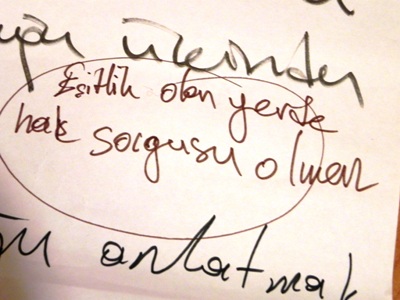 ülkinden
Eşitlik olan yerde
hak sorgusu olmaz
anlatmak